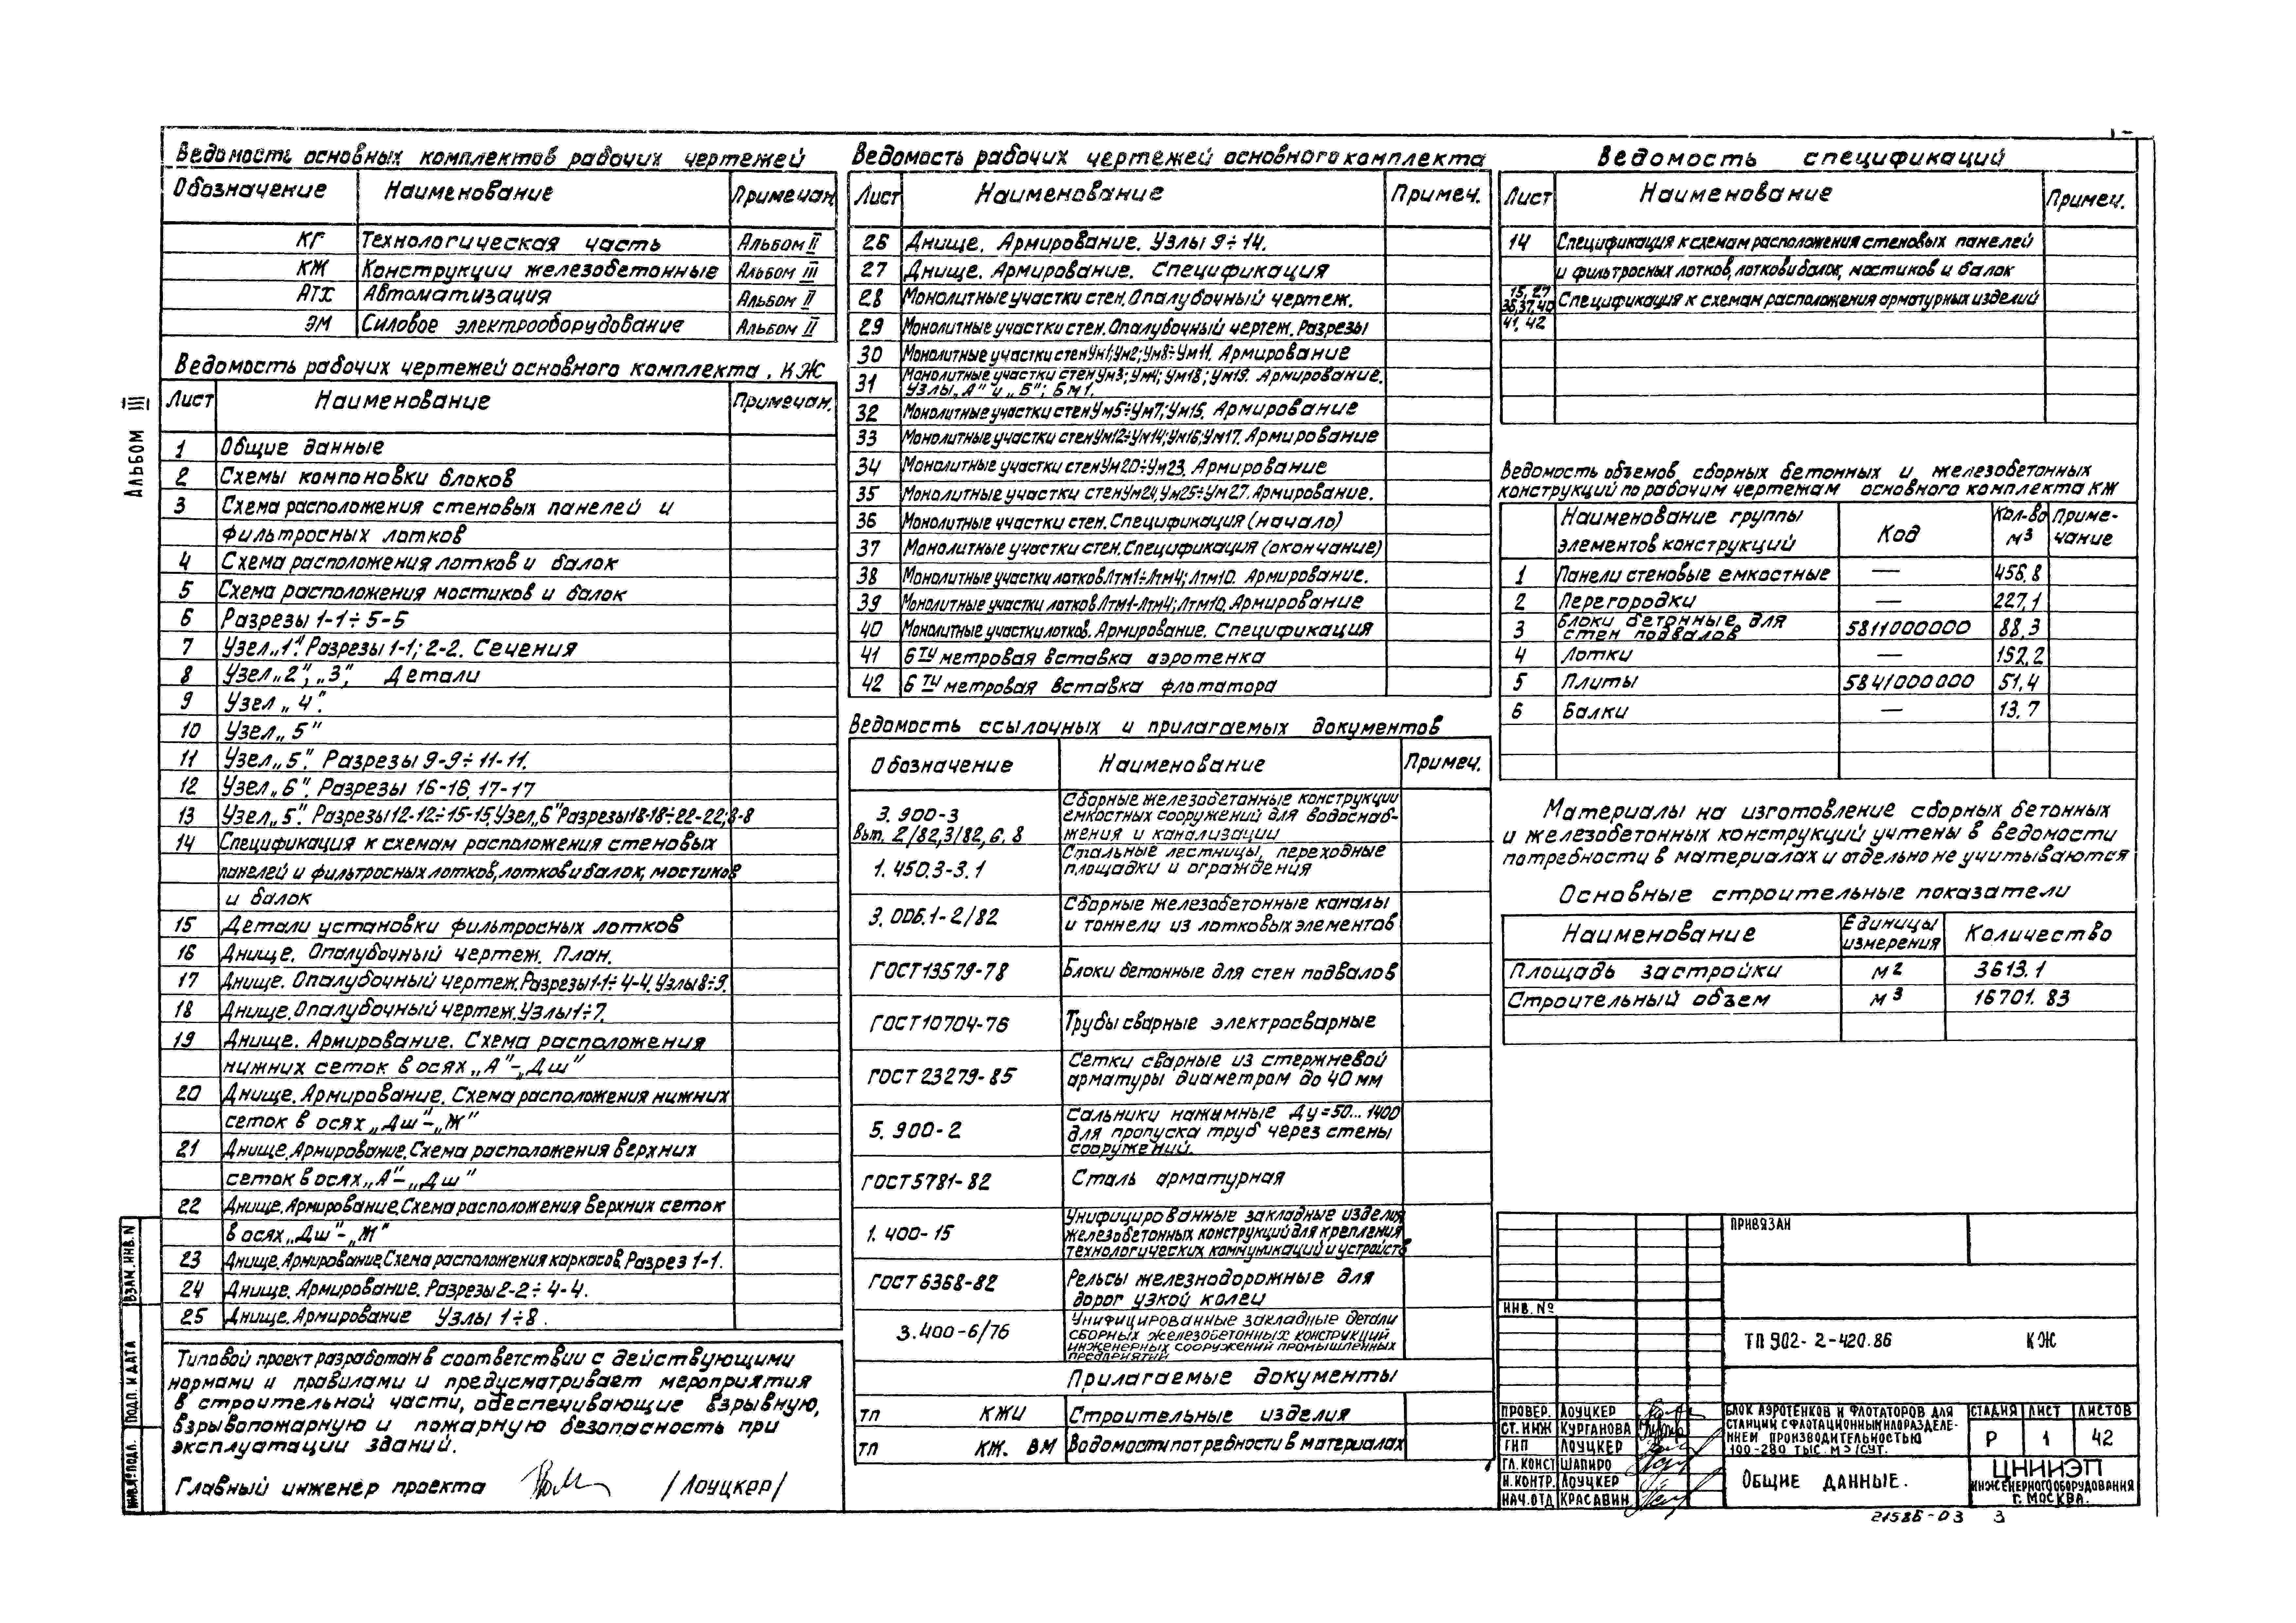 Ведомость основных комплектов рабочих чертежей
Обозначение Наименование Примечан.
КГ Технологическая часть Альбом II
КЖ Конструкции железобетонные Альбом III
АТХ Автоматизация Альбом II
ЭМ Силовое электрооборудование Альбом II
Ведомость рабочих чертежей основного комплекта. КЖ
Лист Наименование Примечан.
1 Общие данные
2 Схемы компоновки блоков
3 Схема расположения стеновых панелей и
фильтросных лотков
4 Схема расположения лотков и балок
5 Схема расположения мостиков и балок
6 Разрезы 1-1÷5-5
7 Узел „1". Разрезы 1-1; 2-2. Сечения
8 Узел „2", „3", Детали
9 Узел „4".
10 Узел „5"
11 Узел „5". Разрезы 9-9÷11-11.
12 Узел „6". Разрезы 16-16, 17-17
13 Узел „5". Разрезы 12-12÷15-15, Узел „6" Разрезы 18-18÷22-22; 8-8
14 Спецификация к схемам расположения стеновых
панелей и фильтросных лотков, лотков и балок, мостиков
и балок
15 Детали установки фильтросных лотков
16 Днище. Опалубочный чертеж. План.
17 Днище. Опалубочный чертеж. Разрезы 1-1÷4-4. Узлы 8÷9.
18 Днище. Опалубочный чертеж. Узлы 1÷7.
19 Днище. Армирование. Схема расположения
нижних сеток в осях „А"-„Дш"
20 Днище. Армирование. Схема расположения нижних
сеток в осях „Дш"-„Ж"
21 Днище. Армирование. Схема расположения верхних
сеток в осях „А"-„Дш"
22 Днище. Армирование. Схема расположения верхних сеток
в осях „Дш"-„Ж"
23 Днище. Армирование. Схема расположения каркасов. Разрез 1-1.
24 Днище. Армирование. Разрезы 2-2÷4-4.
25 Днище. Армирование Узлы 1÷8.
Типовой проект разработан в соответствии с действующими
нормами и правилами и предусматривает мероприятия
в строительной части, обеспечивающие взрывную,
взрывопожарную и пожарную безопасность при
эксплуатации зданий.
Главный инженер проекта /Лоуцкер/
Альбом III
ВЗАМ. ИНВ. N
ПОДП. И ДАТА
ИНВ. № ПОДЛ.
Ведомость рабочих чертежей основного комплекта
Лист Наименование Примеч.
26 Днище. Армирование. Узлы 9÷14.
27 Днище. Армирование. Спецификация
28 Монолитные участки стен. Опалубочный чертеж.
29 Монолитные участки стен. Опалубочный чертеж. Разрезы
30 Монолитные участки стен Ум1; Ум2; Ум8÷Ум11. Армирование
31 Монолитные участки стен Ум3; Ум4; Ум18; Ум19. Армирование.
Узлы „А" и „Б"; Бм1.
32 Монолитные участки стен Ум5÷Ум7; Ум15. Армирование
33 Монолитные участки стен Ум12÷Ум14; Ум16; Ум17. Армирование
34 Монолитные участки стен Ум20÷Ум23. Армирование
35 Монолитные участки стен Ум24, Ум25÷Ум27. Армирование.
36 Монолитные участки стен. Спецификация (начало)
37 Монолитные участки стен. Спецификация (окончание)
38 Монолитные участки лотков Лтм1÷Лтм4; Лтм10. Армирование.
39 Монолитные участки лотков Лтм1-Лтм4; Лтм10. Армирование
40 Монолитные участки лотков. Армирование. Спецификация
41 6ти метровая вставка аэротенка
42 6ти метровая вставка флотатора
Ведомость ссылочных и прилагаемых документов
Обозначение Наименование Примеч.
3.900-3 Сборные железобетонные конструкции
емкостных сооружений для водоснаб-
Вып. 2/82, 3/82, 6. 8 жения и канализации
1.450.3-3.1 Стальные лестницы, переходные
площадки и ограждения
3.006.1-2/82 Сборные железобетонные каналы
и тоннели из лотковых элементов
ГОСТ 13579-78 Блоки бетонные для стен подвалов
ГОСТ 10704-76 Трубы сварные электросварные
ГОСТ 23279-85 Сетки сварные из стержневой
арматуры диаметром до 40 мм
5.900-2 Сальники нажимные Ду=50...1400
для пропуска труб через стены
сооружений.
ГОСТ 5781-82 Сталь арматурная
1.400-15 Унифицированные закладные изделия
железобетонных конструкций для крепления
технологических коммуникаций и устройств
ГОСТ 6368-82 Рельсы железнодорожные для
дорог узкой колеи
3.400-6/76 Унифицированные закладные детали
сборных железобетонных конструкций
инженерных сооружений промышленных
предприятий
Прилагаемые документы
ТП КЖИ Строительные изделия
ТП КЖ. ВМ Ведомости потребности в материалах
Ведомость спецификаций
Лист Наименование Примеч.
14 Спецификация к схемам расположения стеновых панелей
и фильтросных лотков, лотков и балок, мостиков и балок
15, 27 36,37,40 41, 42 Спецификация к схемам расположения арматурных изделий
Ведомость объемов сборных бетонных и железобетонных
конструкций по рабочим чертежам основного комплекта КЖ
Наименование группы элементов конструкций Код Кол-во м3 Приме-чание
1 Панели стеновые емкостные — 456,8
2 Перегородки — 227,1
3 Блоки бетонные для стен подвалов 5811000000 88,3
4 Лотки — 152,2
5 Плиты 5841000000 51,4
6 Балки — 13.7
Материалы на изготовление сборных бетонных
и железобетонных конструкций учтены в ведомости
потребности в материалах и отдельно не учитываются
Основные строительные показатели
Наименование Единицы измерения Количество
Площадь застройки м2 3613.1
Строительный объем м3 16701.83
ПРИВЯЗАН
ИНВ. №
ТП 902-2-420.86 КЖ
ПРОВЕР. ЛОУЦКЕР
СТ. ИНЖ КУРГАНОВА
ГИП ЛОУЦКЕР
ГЛ. КОНСТ ШАПИРО
Н. КОНТР. ЛОУЦКЕР
НАЧ. ОТД КРАСАВИН
БЛОК АЭРОТЕНКОВ И ФЛОТАТОРОВ ДЛЯ
СТАНЦИИ С ФЛОТАЦИОННЫМ ИЛОРАЗДЕЛЕ-
НИЕМ ПРОИЗВОДИТЕЛЬНОСТЬЮ
100-280 ТЫС. М3/СУТ.
СТАДИЯ ЛИСТ ЛИСТОВ
Р 1 42
ОБЩИЕ ДАННЫЕ.
ЦНИИЭП
ИНЖЕНЕРНОГО ОБОРУДОВАНИЯ
Г. МОСКВА.
21586-03 3